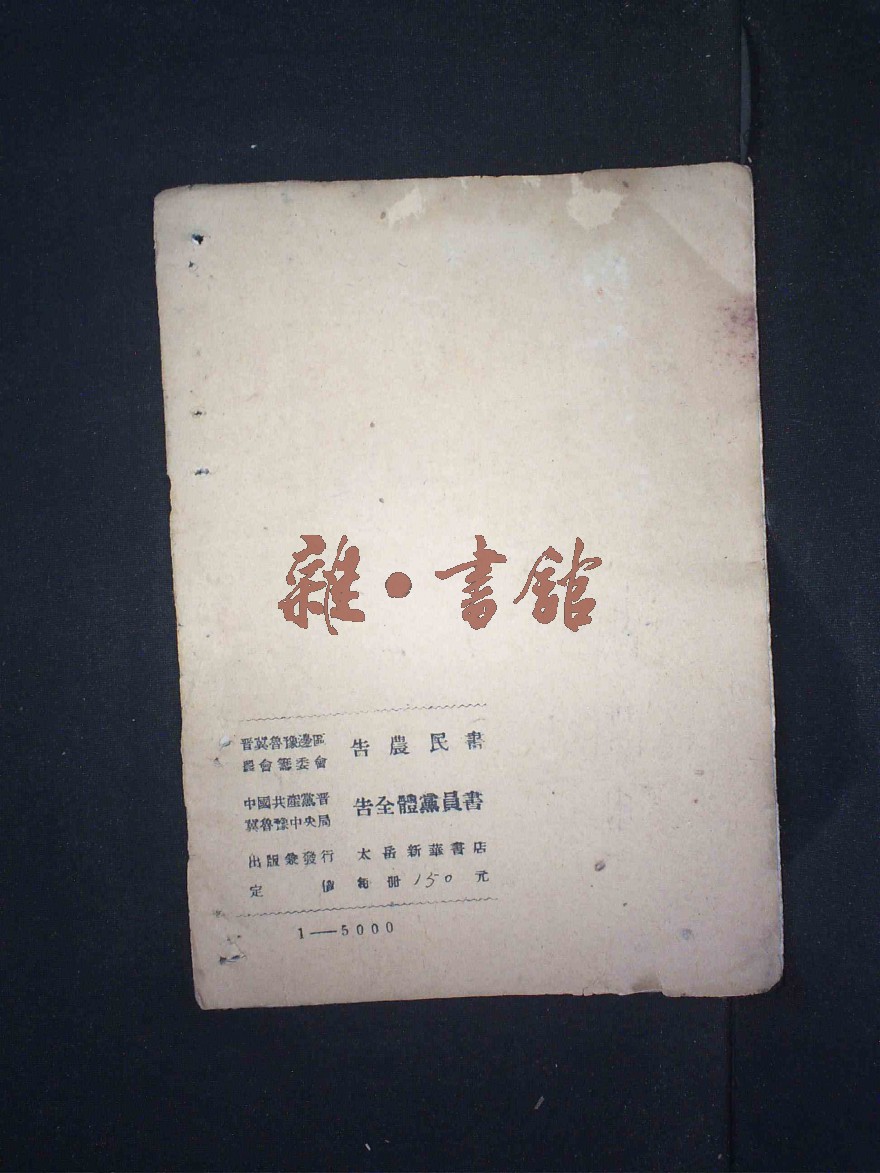 雜·書館
晋冀魯豫邊區 告農民書
農會籌委會
中國共產黨晋 告全體黨員書
冀魯豫中央局
出版兼發行 太岳新華書店
定價 每冊150元
1—5000